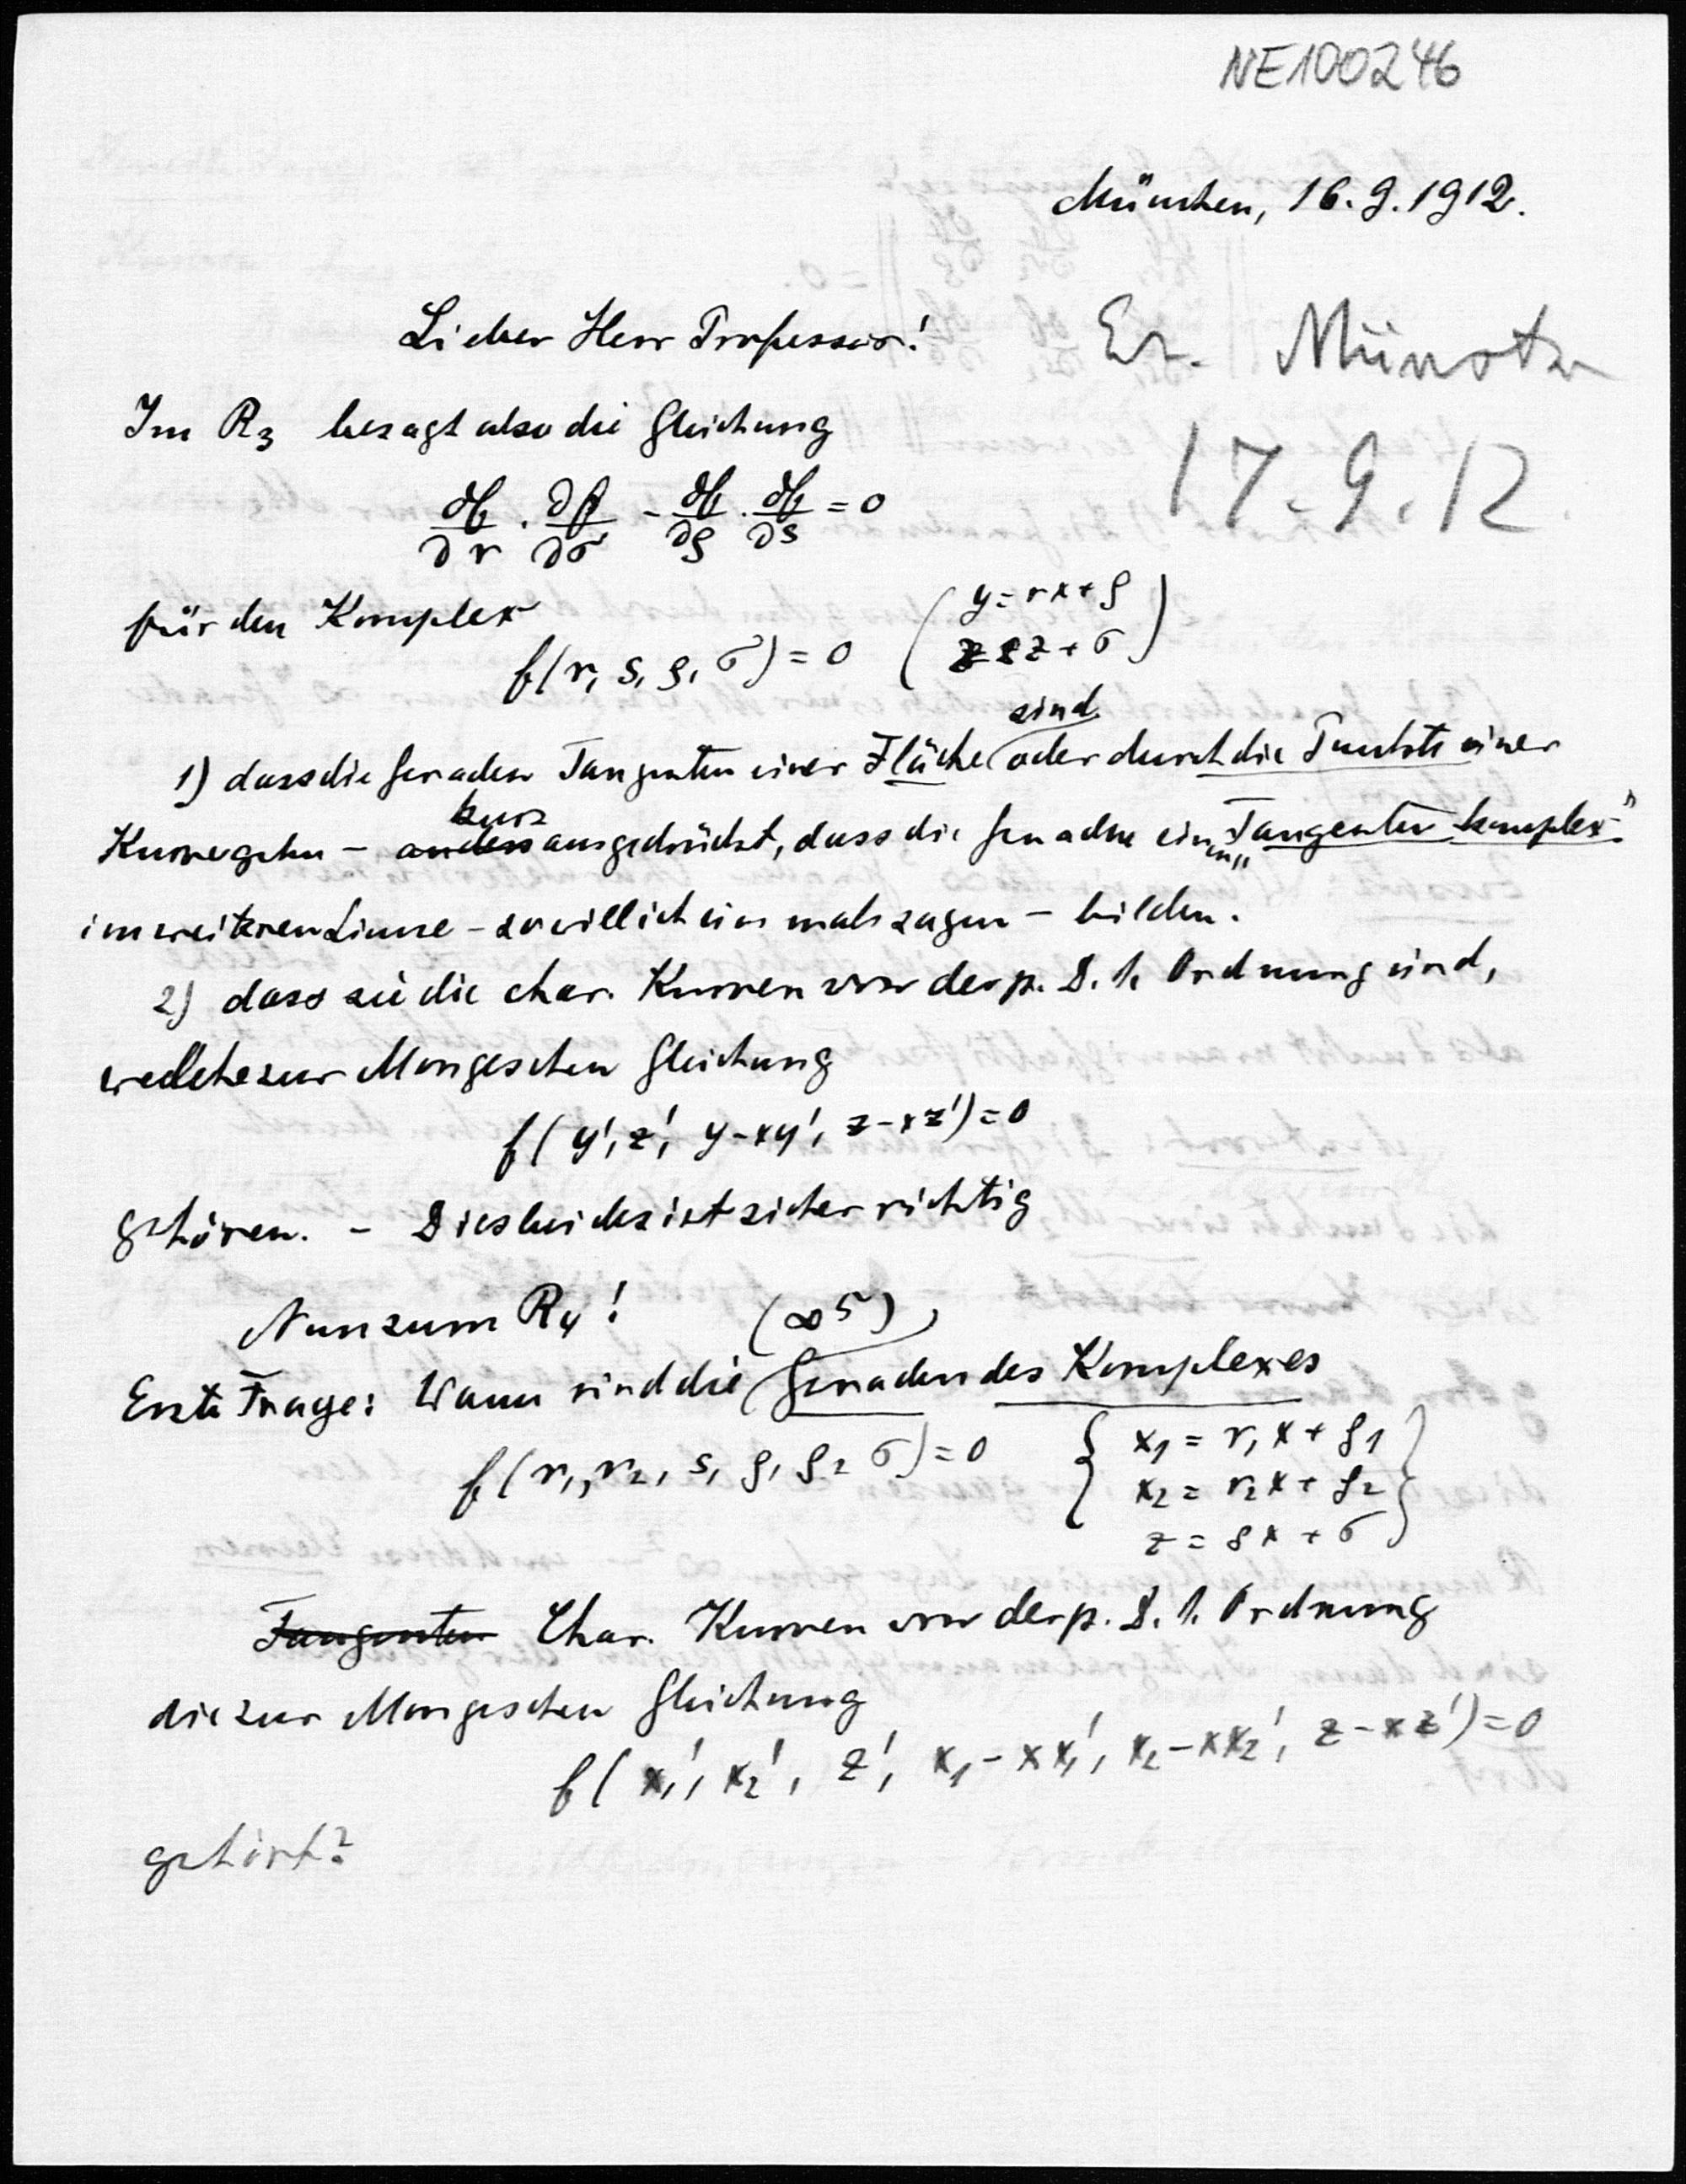 NE100246
München, 16.9.1912.
Lieber Herr Professor!
Er. Münster
17.9.12
Im R₃ besagt also die Gleichung
∂f/∂r · ∂f/∂σ - ∂f/∂ρ · ∂f/∂s = 0
für den Komplex
f(r, s, ρ, σ) = 0 (y = rx + ρ
z = sz + σ)
sind
1) dass die Geraden Tangenten einer Fläche oder durch die Punkte einer
kurz
Kurve gehn - anders ausgedrückt, dass die Geraden einen „Tangentenkomplex"
im weiteren Sinne - so will ich einmal sagen - bilden.
2) dass sie die char. Kurven von der p. D. 1. Ordnung sind,
welche zur Mongeschen Gleichung
f(y', z', y-xy', z-xz') = 0
gehören. - Dies beides ist sicher richtig
Nun zum R₄! (∞⁵)
Erste Frage: Wann sind die Geraden des Komplexes
f(r₁, r₂, s, ρ₁ ρ₂ σ) = 0 { x₁ = r₁x + ρ₁
x₂ = r₂x + ρ₂
z = sx + σ }
Tangenten Char. Kurven von der p. D. 1. Ordnung
die zur Mongeschen Gleichung
f(x₁', x₂', z', x₁-xx₁', x₂-xx₂', z-xz') = 0
gehört?